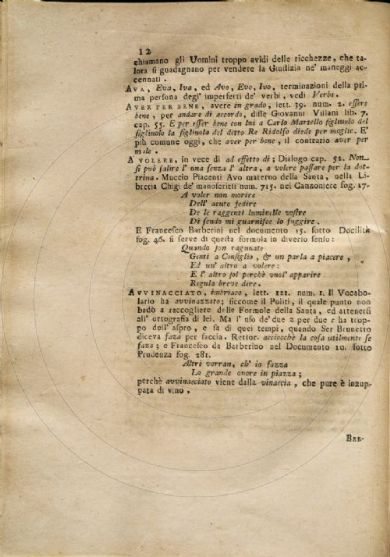 12
chiamano gli Uomini troppo avidi delle ricchezze, che ta-
lora si guadagnano per vendere la Giustizia ne' maneggi ac-
cennati.
AVA, Eva, Iva, ed Avo, Evo, Ivo, terminazioni della pri-
ma persona degl' imperfetti de' verbi, vedi Verbo.
AVER PER BENE, avere in grado, lett. 39. num. 2. essere
bene, per andare di accordo, disse Giovanni Villani lib. 7.
cap. 55. E per esser bene con lui a Carlo Martello figliuolo del
figliuolo la figliuola del detto Re Ridolfo diede per moglie. E'
più comune oggi, che aver per bene, il contrario aver per
male.
A VOLERE, in vece di ad effetto di; Dialogo cap. 52. Non..
si può salire l' una senza l' altra, a volere passare per la dot-
trina. Muccio Piacenti Avo materno della Santa, nella Li-
breria Chigi de' manoscritti num. 715. nel Canzoniere fog. 27.
A voler non morire
Dell' acute fedire
De le raggenti luminelle vostre
Di senio mi guarnisco lo fuggire.
E Francesco Barberini nel documento 15. sotto Docilità
fog. 46. si serve di questa formola in diverso senso:
Quando son ragunate
Genti a Consiglio, & un parla a piacere,
Ed un' altro a volere:
E l' altro sol perchè vuol' apparire
Regula breve dire.
AVVINACCIATO, lett. 121. num. 1. Il Vocabo-
lario ha avvinazzato; siccome il Politi, il quale punto non
badò a raccogliere delle Formole della Santa, ed attenersi
all' ortografia di lei. Ma l' uso de' due z per due c ha trop-
po dell' aspro, e sa di quei tempi, quando Ser Brunetto
diceva fazza per faccia. Rettor. acciocchè la cosa utilmente se
fazza; e Francesco da Barberino nel Documento 10. sotto
Prudenza fog. 281.
Altri vorran, ch' io fazza
Lo grande onore in piazza;
perchè avvinacciato viene dalla vinaccia, che pure è inzup-
pata di vino.
BRE-